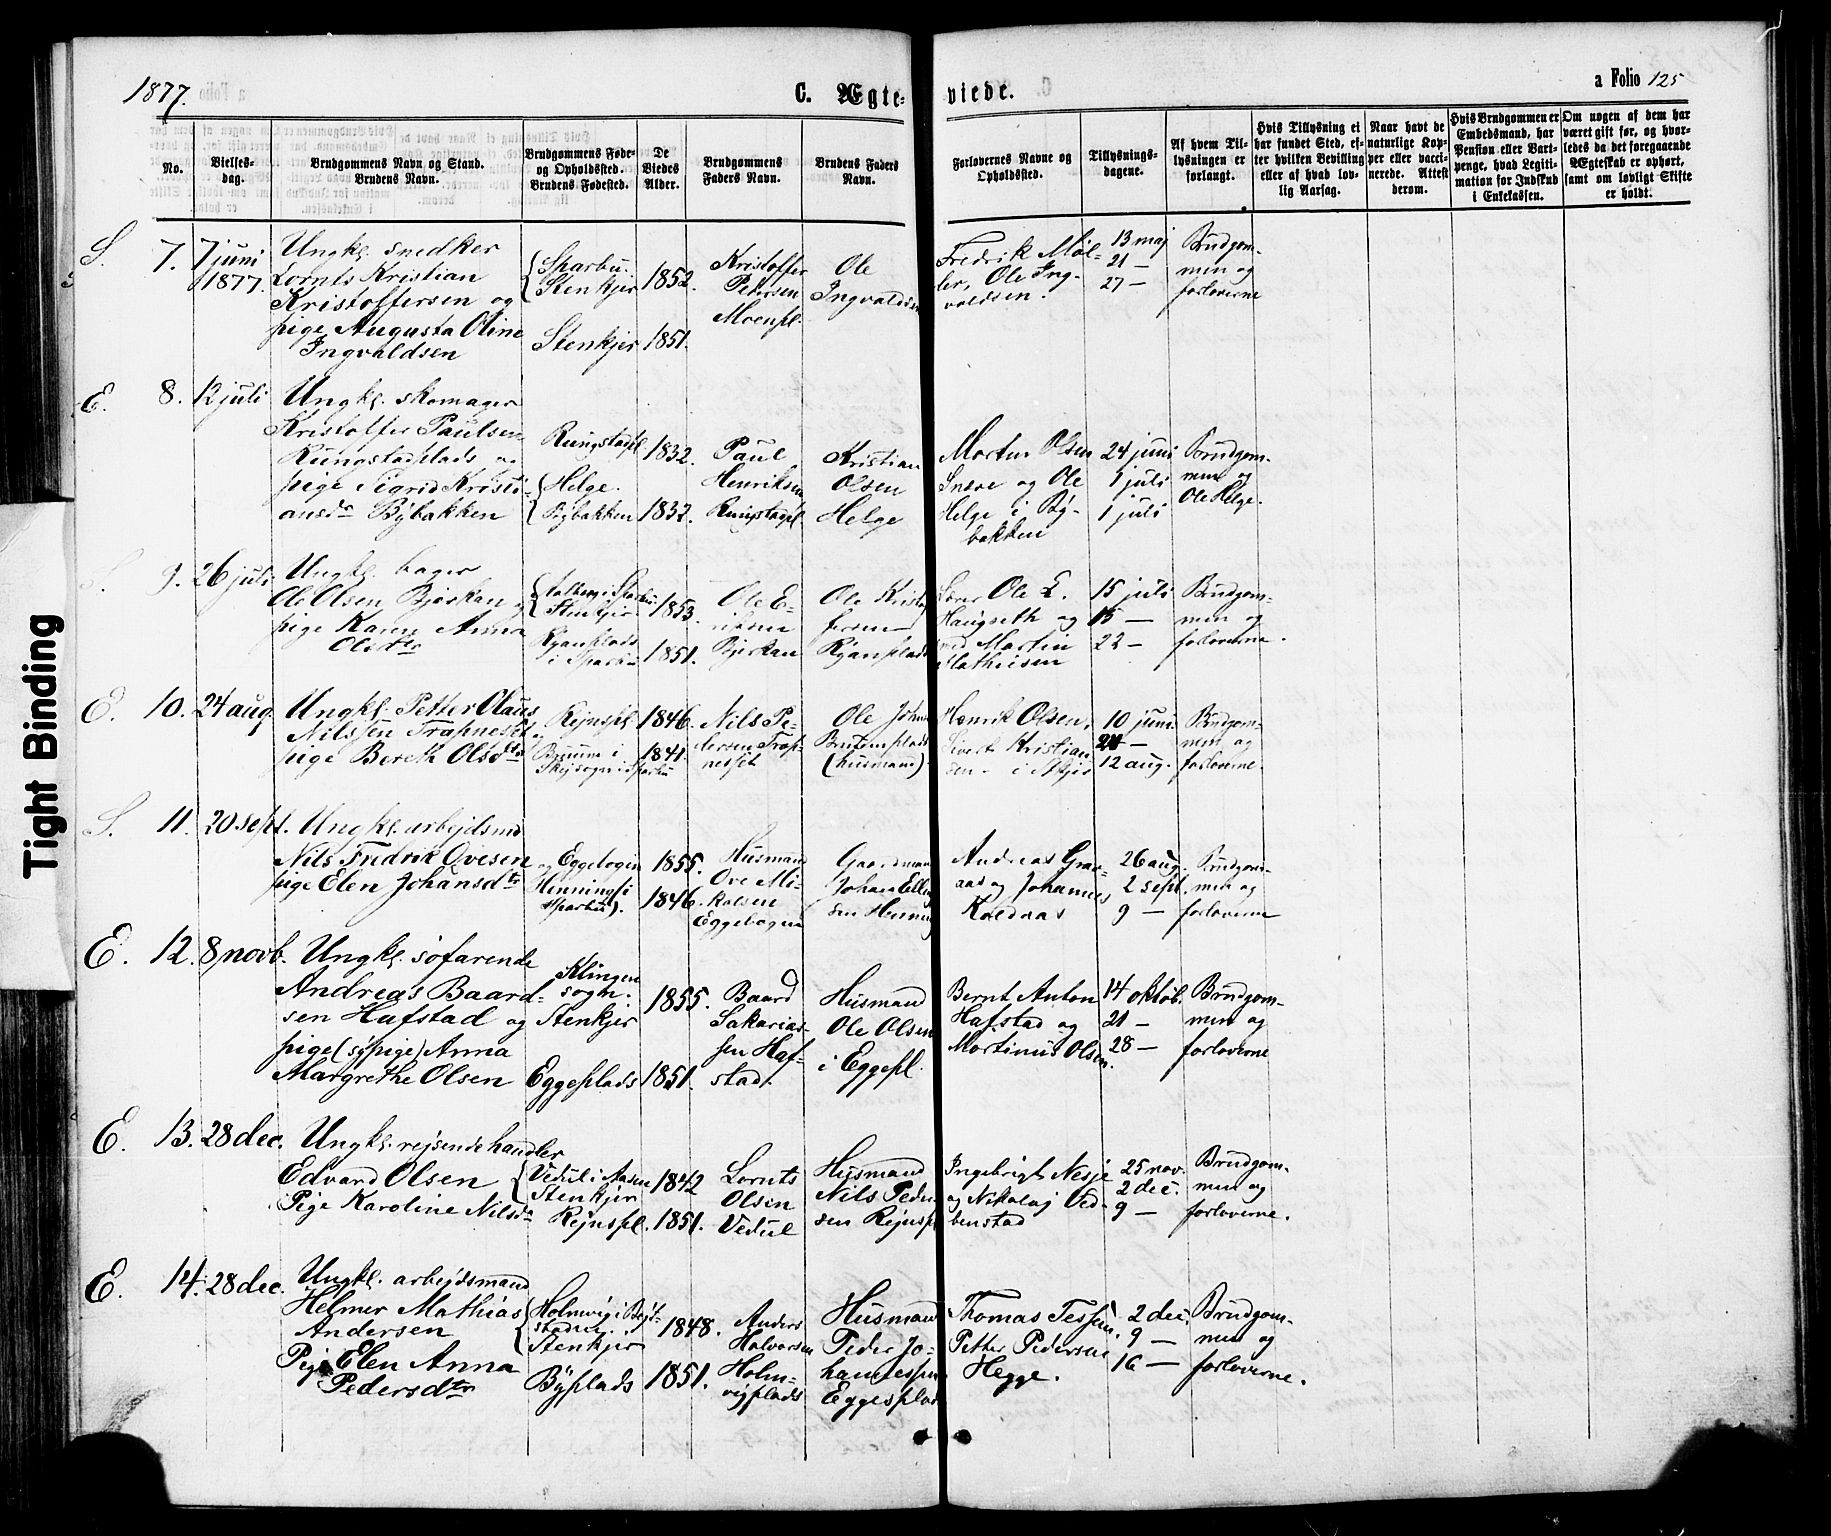 Tight Binding
1877.
C. Ægte-
viede.
a Folio 125
No.
Vielses-
dag.
Brudgommens Navn og Stand.
Brudens Navn.
Brudgommens Føde-
og Opholdssted.
Brudens Fødested.
De
Viedes
Alder.
Brudgommens
Faders Navn.
Brudens Faders
Navn.
Forlovernes Navne og
Opholdssted.
Tillysnings-
dagene.
Af hvem Til-
lysningen er
forlangt.
Hvis Tillysning ei
har fundet Sted, ef-
ter hvilken Bevilling
eller af hvad lov-
lig Aarsag.
Naar havt de
naturlige Kop-
per eller vacci-
nerede. Attest
derom.
Hvis Brudgommen er
Embedsmand, har
Pension eller Vart-
penge, hvad Legiti-
mation for Indskud
i Enkekassen.
Om nogen af dem har
været gift før, og hvor-
ledes da det foregaaende
Ægteskab er ophørt,
samt om lovligt Skifte
er holdt.
S. 7. 7 juni
1877.
Ungkl. snedker
Lornts Kristian
Kristoffersen og
pige Augusta Oline
Ingvaldsen
Sparbu.
Stenkjer
Stenkjer
1852.
1851.
Kristoffer
Pedersen
Moenpl.
Ole
Ingvaldsen
Fredrik Møl-
ler, Ole Ing-
valdsen.
13 maj
21 —
27 —
Brudgom-
men og
forloverne
E. 8. 12 juli
Ungkl. skomager
Kristoffer Paulsen
Rungstadplads og
pige Sigrid Kristi-
ansdr Bybakken
Rungstadpl
Helge.
Bybakken
1832.
1832.
Paul
Henriksen
Kristian
Olsen
Helge
Morten Olsen
Snæve og Ole
Helge i By-
bakken
24 juni
1 juli
1 juli
Brudgom-
men og
Ole Helge.
S. 9. 26 juli
Ungkl. bager
Ole Olsen Bjørkan og
pige Karen Anna
Olsdtr
Stenkjer
Ryanplads
i Sparbu
1853.
1851.
Ole E-
riksen
Bjørkan
Ole Kristof
fersen
Ryanplads
Ole L.
Haugseth og
Martin
Mathiesen
15 juli
15 —
22 —
Brudgom-
men og
forloverne.
E. 10. 24 aug.
Ungkl. Petter Olaus
Nilssen Trapneset
pige Bereth Olsdtr
Rejnspl
1846.
1841.
Nils Pe-
dersen Trap-
nesset
Ole
(husmand).
Henrik Olsen,
Sivert Kristian
sen. i Skjør
10 juni
24 —
12 aug.
Brudgom-
men og
forloverne.
S. 11. 20 sept.
Ungkl. arbejdsmd
Nils Fredrik Ovesen og
pige Elen Johansdtr
Eggebogen
Henning (i
Sparbu).
1855.
1846.
Husmand
Ove Mi-
kalsen
Eggebogen
Gaardmand
Johan Elling
sen Henning
Andreas Graa-
aas og Johannes
Koldaas
26 aug.
2 sept.
9 —
Brudgom-
men og
forloverne
E. 12. 8 novb.
Ungkl. søfarende
Andreas Baard-
sen Hafstad og
pige (sypige) Anna
Margrethe Olsen
Klingen
sogn.
Stenkjer
Eggeplads
1855.
1851.
Baard
Sakarias-
sen Haf-
stad.
Husmand
Ole Olsen
i Eggepl.
Bernt Anton
Hafstad og
Martinus Olsen.
14 oktob.
21 —
28 —
Brudgom-
men og
forloverne
E. 13. 28 dec.
Ungkl. rejsende handler
Edvard Olsen
Pige Karoline Nilsdr
Vedul i Aasen
Stenkjer
Rejnspl.
1842
1851.
Lornts
Olsen
Vedul
Husmand
Nils Peder
sen Rejnspl
Ingebrigt Nesje
og Nikolaj Ved-
benstad
25 nov.
2 dec.
9 —
Brudgom-
men og
forloverne.
E. 14. 28 dec.
Ungkl. arbejdsmand
Helmer Mathias
Andersen
Pige Elen Anna
Pedersdtr
Holmvig i Bejt-
staden.
Stenkjer
Byplads
1848.
1851.
Anders
Halvorsen
Holm-
vigplads
Husmand
Peder Jo-
hannessen
Eggesplads
Thomas Tessem,
Petter Pedersen
Hegge.
2 dec.
9 —
16 —
Brudgom-
men og
forloverne.